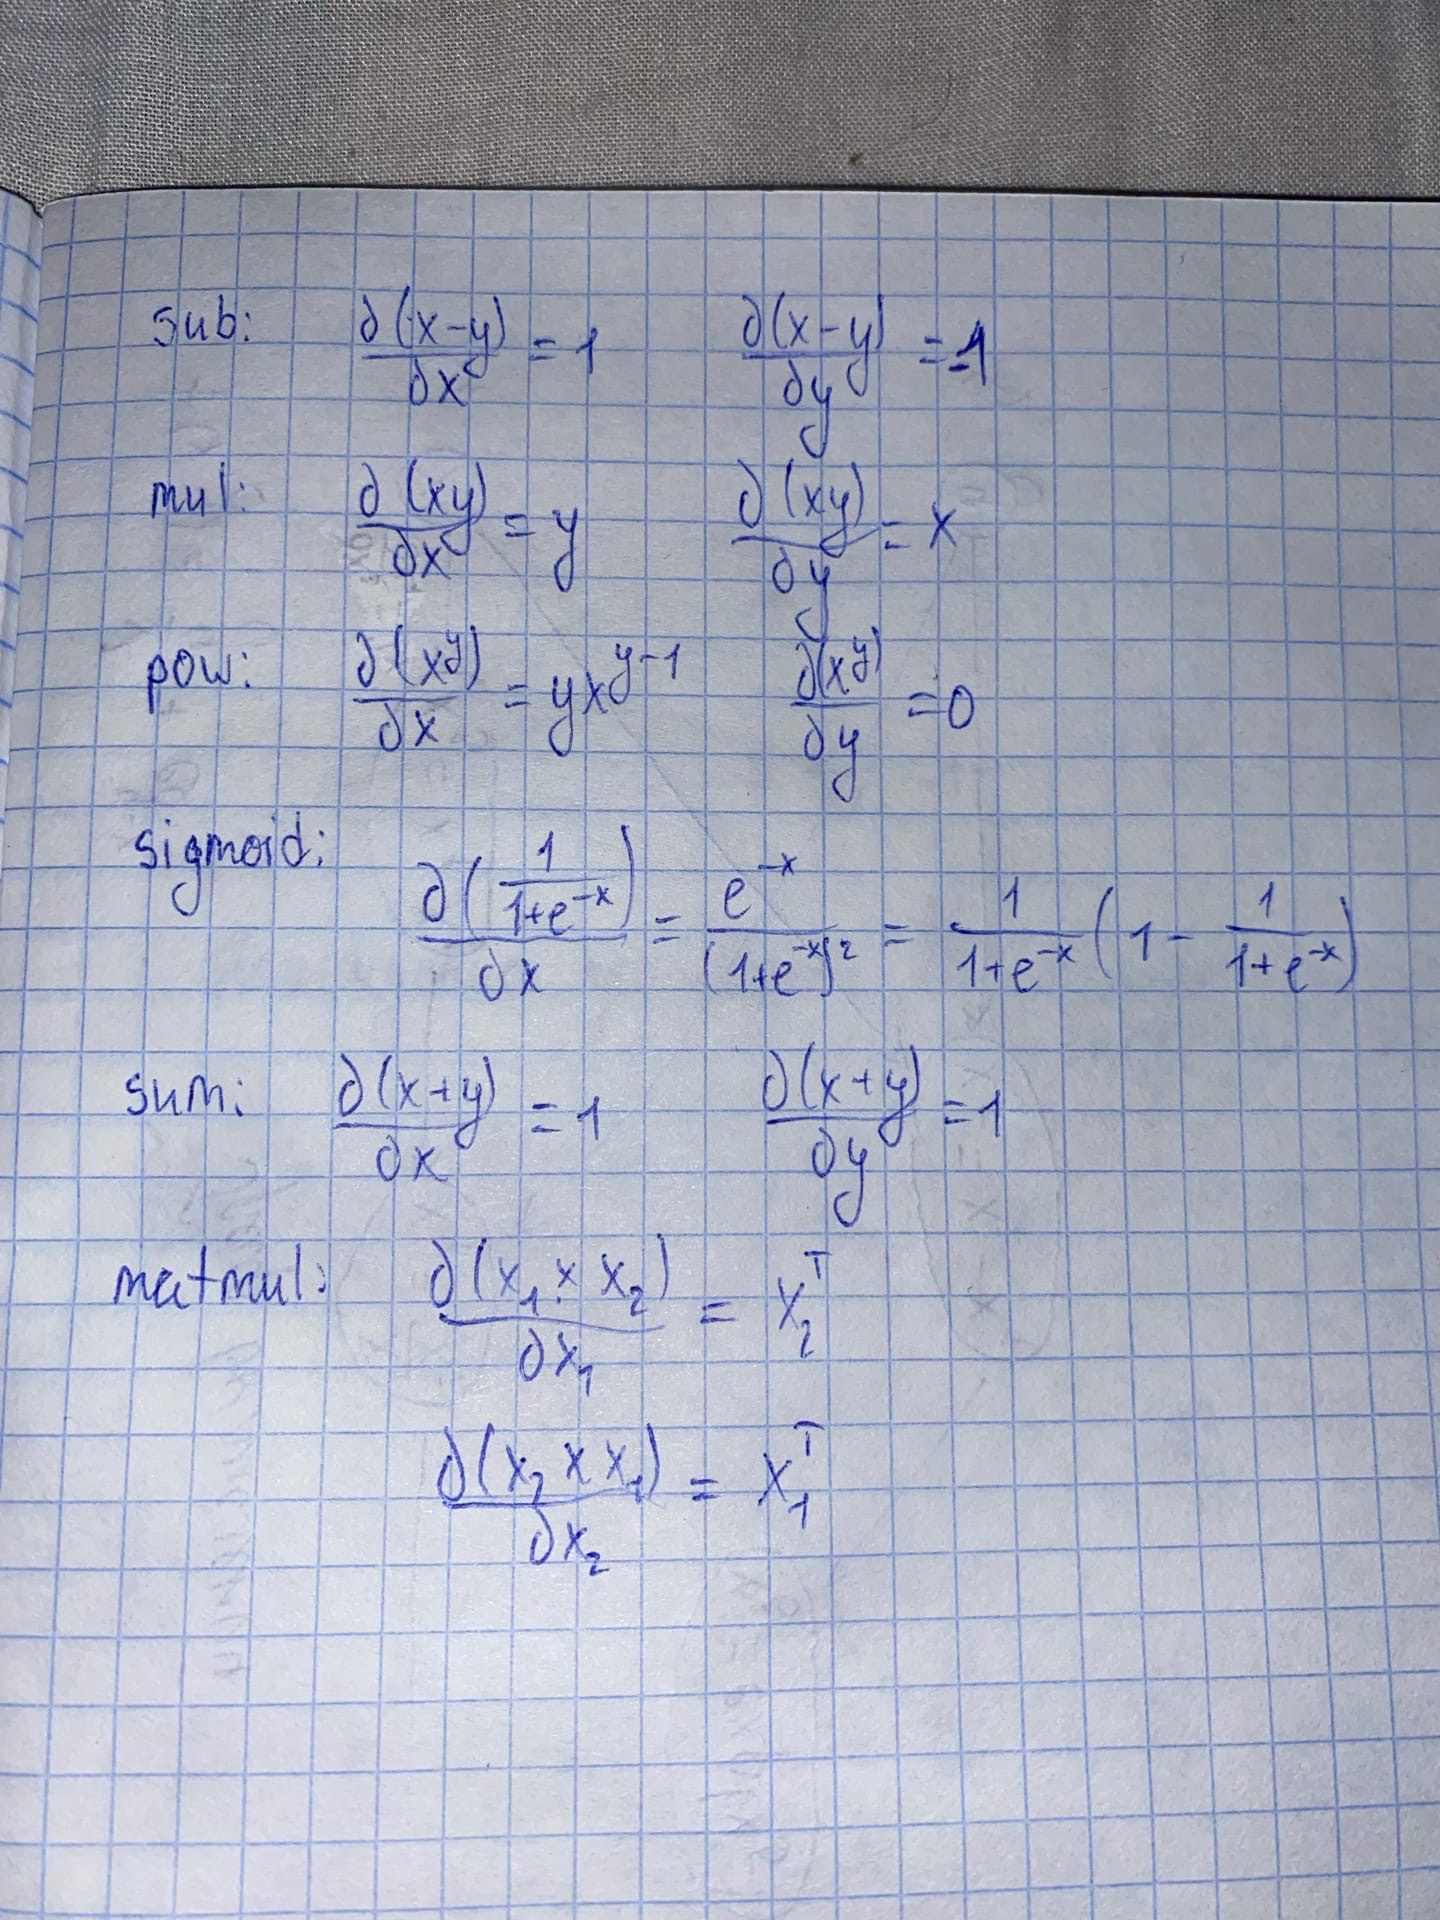 sub: ∂(x-y)/∂x = 1 ∂(x-y)/∂y = -1
mul: ∂(xy)/∂x = y ∂(xy)/∂y = x
pow: ∂(x^y)/∂x = yx^(y-1) ∂(x^y)/∂y = 0
sigmoid:
∂(1/(1+e^(-x)))/∂x = e^(-x)/(1+e^(-x))² = 1/(1+e^(-x)) (1 - 1/(1+e^(-x)))
sum: ∂(x+y)/∂x = 1 ∂(x+y)/∂y = 1
matmul: ∂(x₁ × x₂)/∂x₁ = x₂ᵀ
∂(x₂ × x₁)/∂x₂ = x₁ᵀ